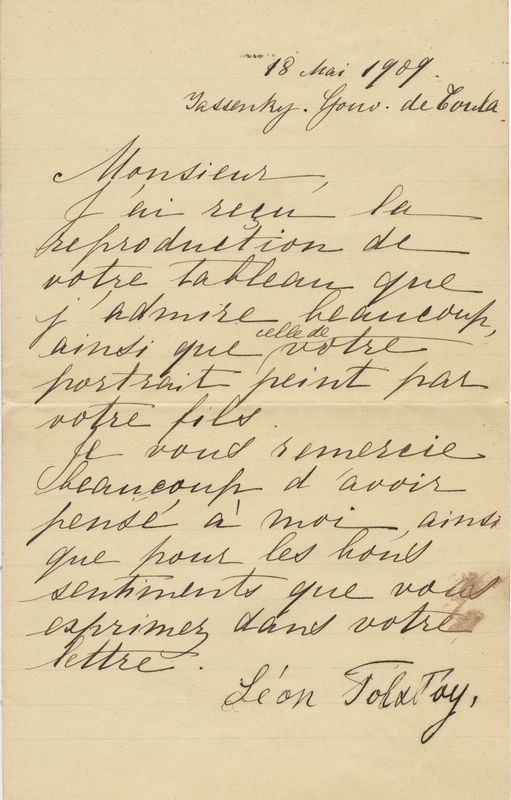 18 Mai 1909.
Jassenky. Gouv. de Toula
Monsieur,
J'ai reçu la
reproduction de
votre tableau que
j'admire beaucoup,
ainsi que celle de votre
portrait peint par
votre fils.
Je vous remercie
beaucoup d'avoir
pensé à moi, ainsi
que pour les bons
sentiments que vous
exprimez dans votre
lettre.
Léon Tolstoy.